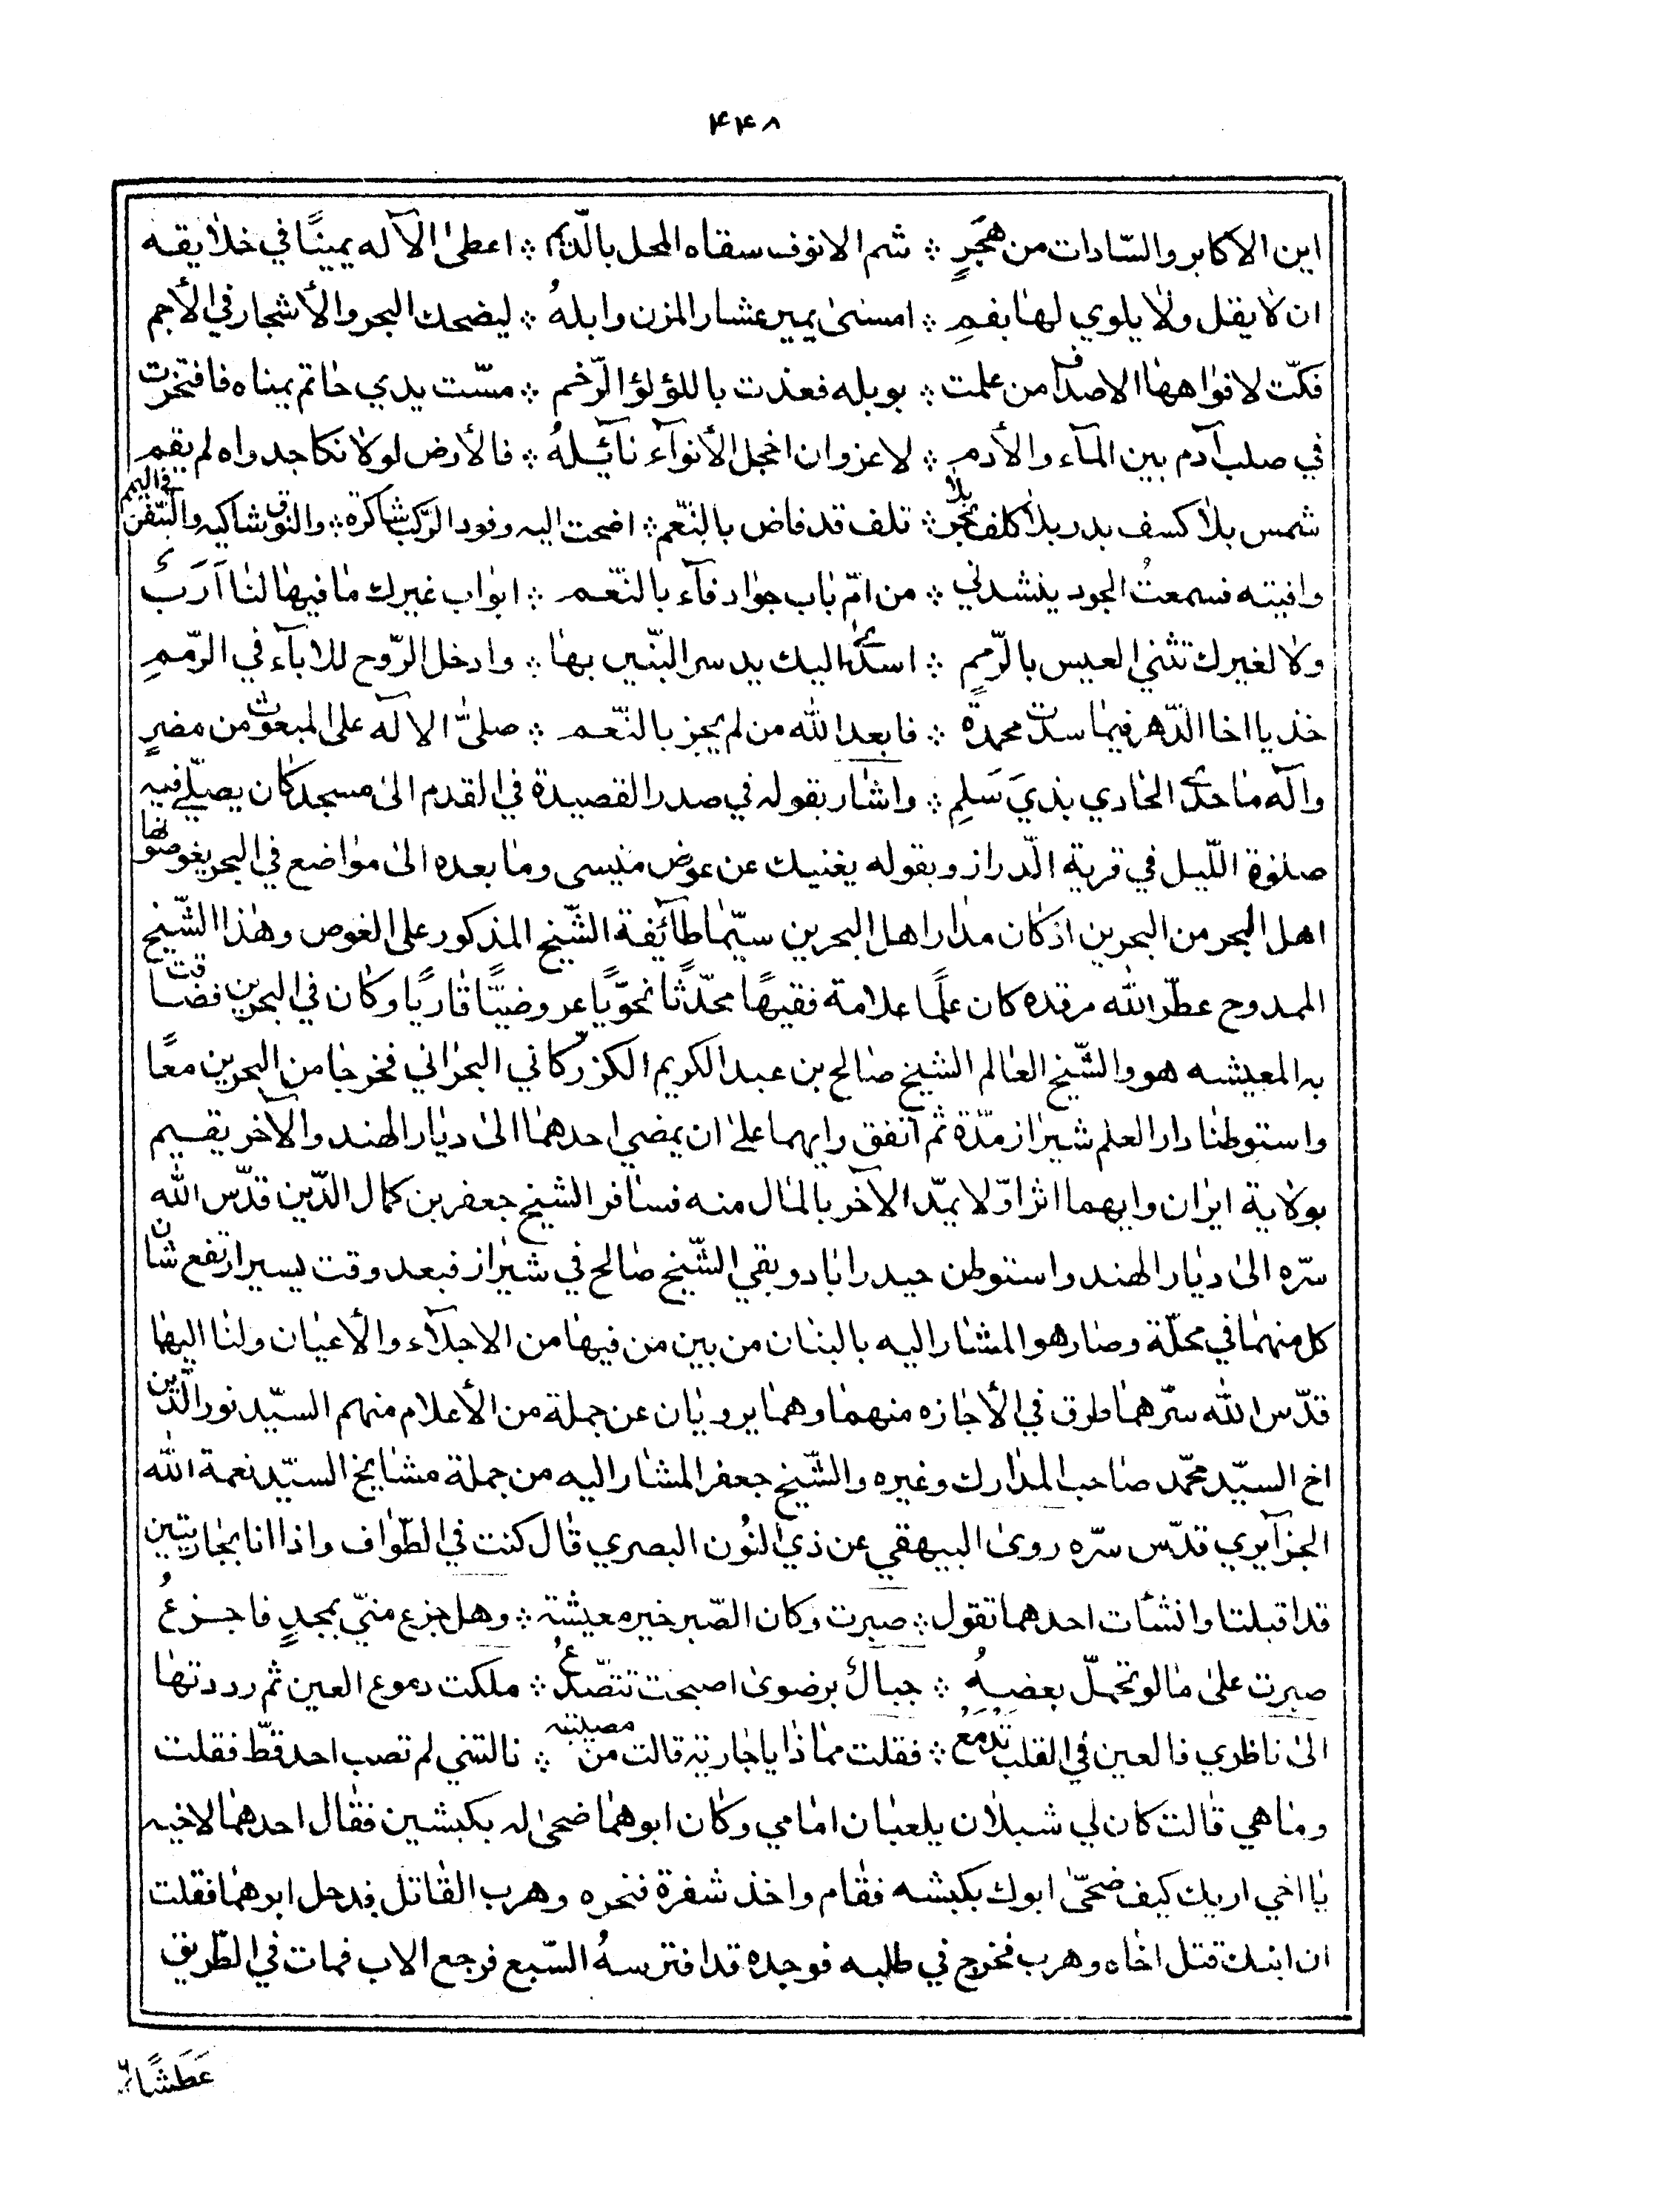 ۴۴۸
اين الاكابر والسّادات من هَجَرٍ ؞ شم الانوف سقاه المحل بالدّيم ؞ اعطىٰ الآله يمينًا في خلايقه
ان لا يقل ولا يلوي لها بفمِ ؞ امسىٰ يمير عشار المزن وابلهُ ؞ ليضحك البحر والأشجار في الأجم
فكّت لافواهها الاصداف من علمت ؞ بوبله فغذت باللؤلؤ الرّخم ؞ مسّت يدي خاتم يمناه فافتخرت
في صلب آدم بين المآء والأدم ؞ لا عزو ان اخجل الأنوآء نآئلهُ ؞ فالأرض لولا نكا جدواه لم يقم
شمس بلا كسف بدر بلا كلف بحر بلا ؞ تلف قد فاض بالنّعم ؞ اضحت اليه وفود الرّكب شاكرة ؞ والنوق شاكيه والسّفن في اليم
وافيته فسمعتُ الجود ينشدني ؞ من امّ باب جواد فآء بالنّعم ؞ ابواب غيرك ما فيها لنا اَرَبٌ
ولا لغيرك تثني العيس بالرّمم ؞ اسدىٰ اليك يد سر البنين بها ؞ وادخل الرّوح للاباء في الرّممِ
خذ يا اخا الدّهر فيما سدت محمدةً ؞ فابعد الله من لم يجز بالنّعم ؞ صلىّ الاله على المبعوث من مضرٍ
وآله ما حدىٰ الحادي بذي سَلمِ ؞ واشار بقوله في صدر القصيدة في القدم الىٰ مسجد كان يصلّي فيه
صلوة اللّيل في قرية الدّراز وبقوله يغنيك عن عوض منيسى وما بعده الىٰ مواضع في البحر يغوصونها
اهل البحر من البحرين اذ كان مدار اهل البحرين سيّما طآئفة الشّيخ المذكور على الغوص وهذا الشّيخ
الممدوح عطّر الله مرقده كان علمًا علامة فقيهًا محدّثًا نحوّيًا عروضيّا قاريًا وكان في البحرين فضاقت
به المعيشه هو والشّيخ العالم الشيخ صالح بن عبد الكريم الكزركاني البحراني فخرجا من البحرين معًا
واستوطنا دار العلم شيراز مدّة ثم اتفق رايهما علىٰ ان يمضي احدهما الىٰ ديار الهند والآخر يقيم
بولاية ايران وايهما اثرا وّلا يمدّ الآخر بالمال منه فسافر الشيخ جعفر بن كمال الدّين قدّس الله
سرّه الىٰ ديار الهند واستوطن حيدراباد وبقي الشّيخ صالح في شيراز فبعد وقت يسير ارتفع شان
كل منهما في محلّة وصار هو المشار اليه بالبنان من بين من فيها من الاجلآء والأعيان ولنا اليها
قدّس الله سرّهما طرق في الأجازه منهما وهما يرويان عن جملة من الأعلام منهم السيّد نور الدّين
اخ السيّد محمّد صاحب المدارك وغيره والشّيخ جعفر المشار اليه من جملة مشايخ السيّد نعمة الله
الجزآيري قدّس سرّه روىٰ البيهقي عن ذي النُون البصري قال كنت في الطّواف واذا انا بجاريتين
قد اقبلتا وانشأت احدهما تقول ؞ صبرت وكان الصّبر خيره معيشة ؞ وهل جزع منيّ بمجدٍ فاجزعُ
صبرت علىٰ ما لو تحمّل بعضهُ ؞ جبالٌ برضوىٰ اصبحت تتصّدعُ ؞ ملكت دموع العين ثم رددتها
الىٰ ناظري فالعين في القلب تَدمَعُ ؞ فقلت مماذا يا جارية قالت من مصيبة ؞ نالتني لم تصب احد قطّ فقلت
وما هي قالت كان لي شبلان يلعبان امامي وكان ابوهما ضحىٰ له بكبشين فقال احدهما لاخيه
يا اخي اريك كيف ضحّىٰ ابوك بكبشه فقام واخذ شفرة فنحره وهرب القاتل فدخل ابوهما فقلت
ان ابنك قتل اخاه وهرب فخرج في طلبه فوجده قد افترسهُ السّبع فرجع الاب فمات في الطّريق
عَطَشًا